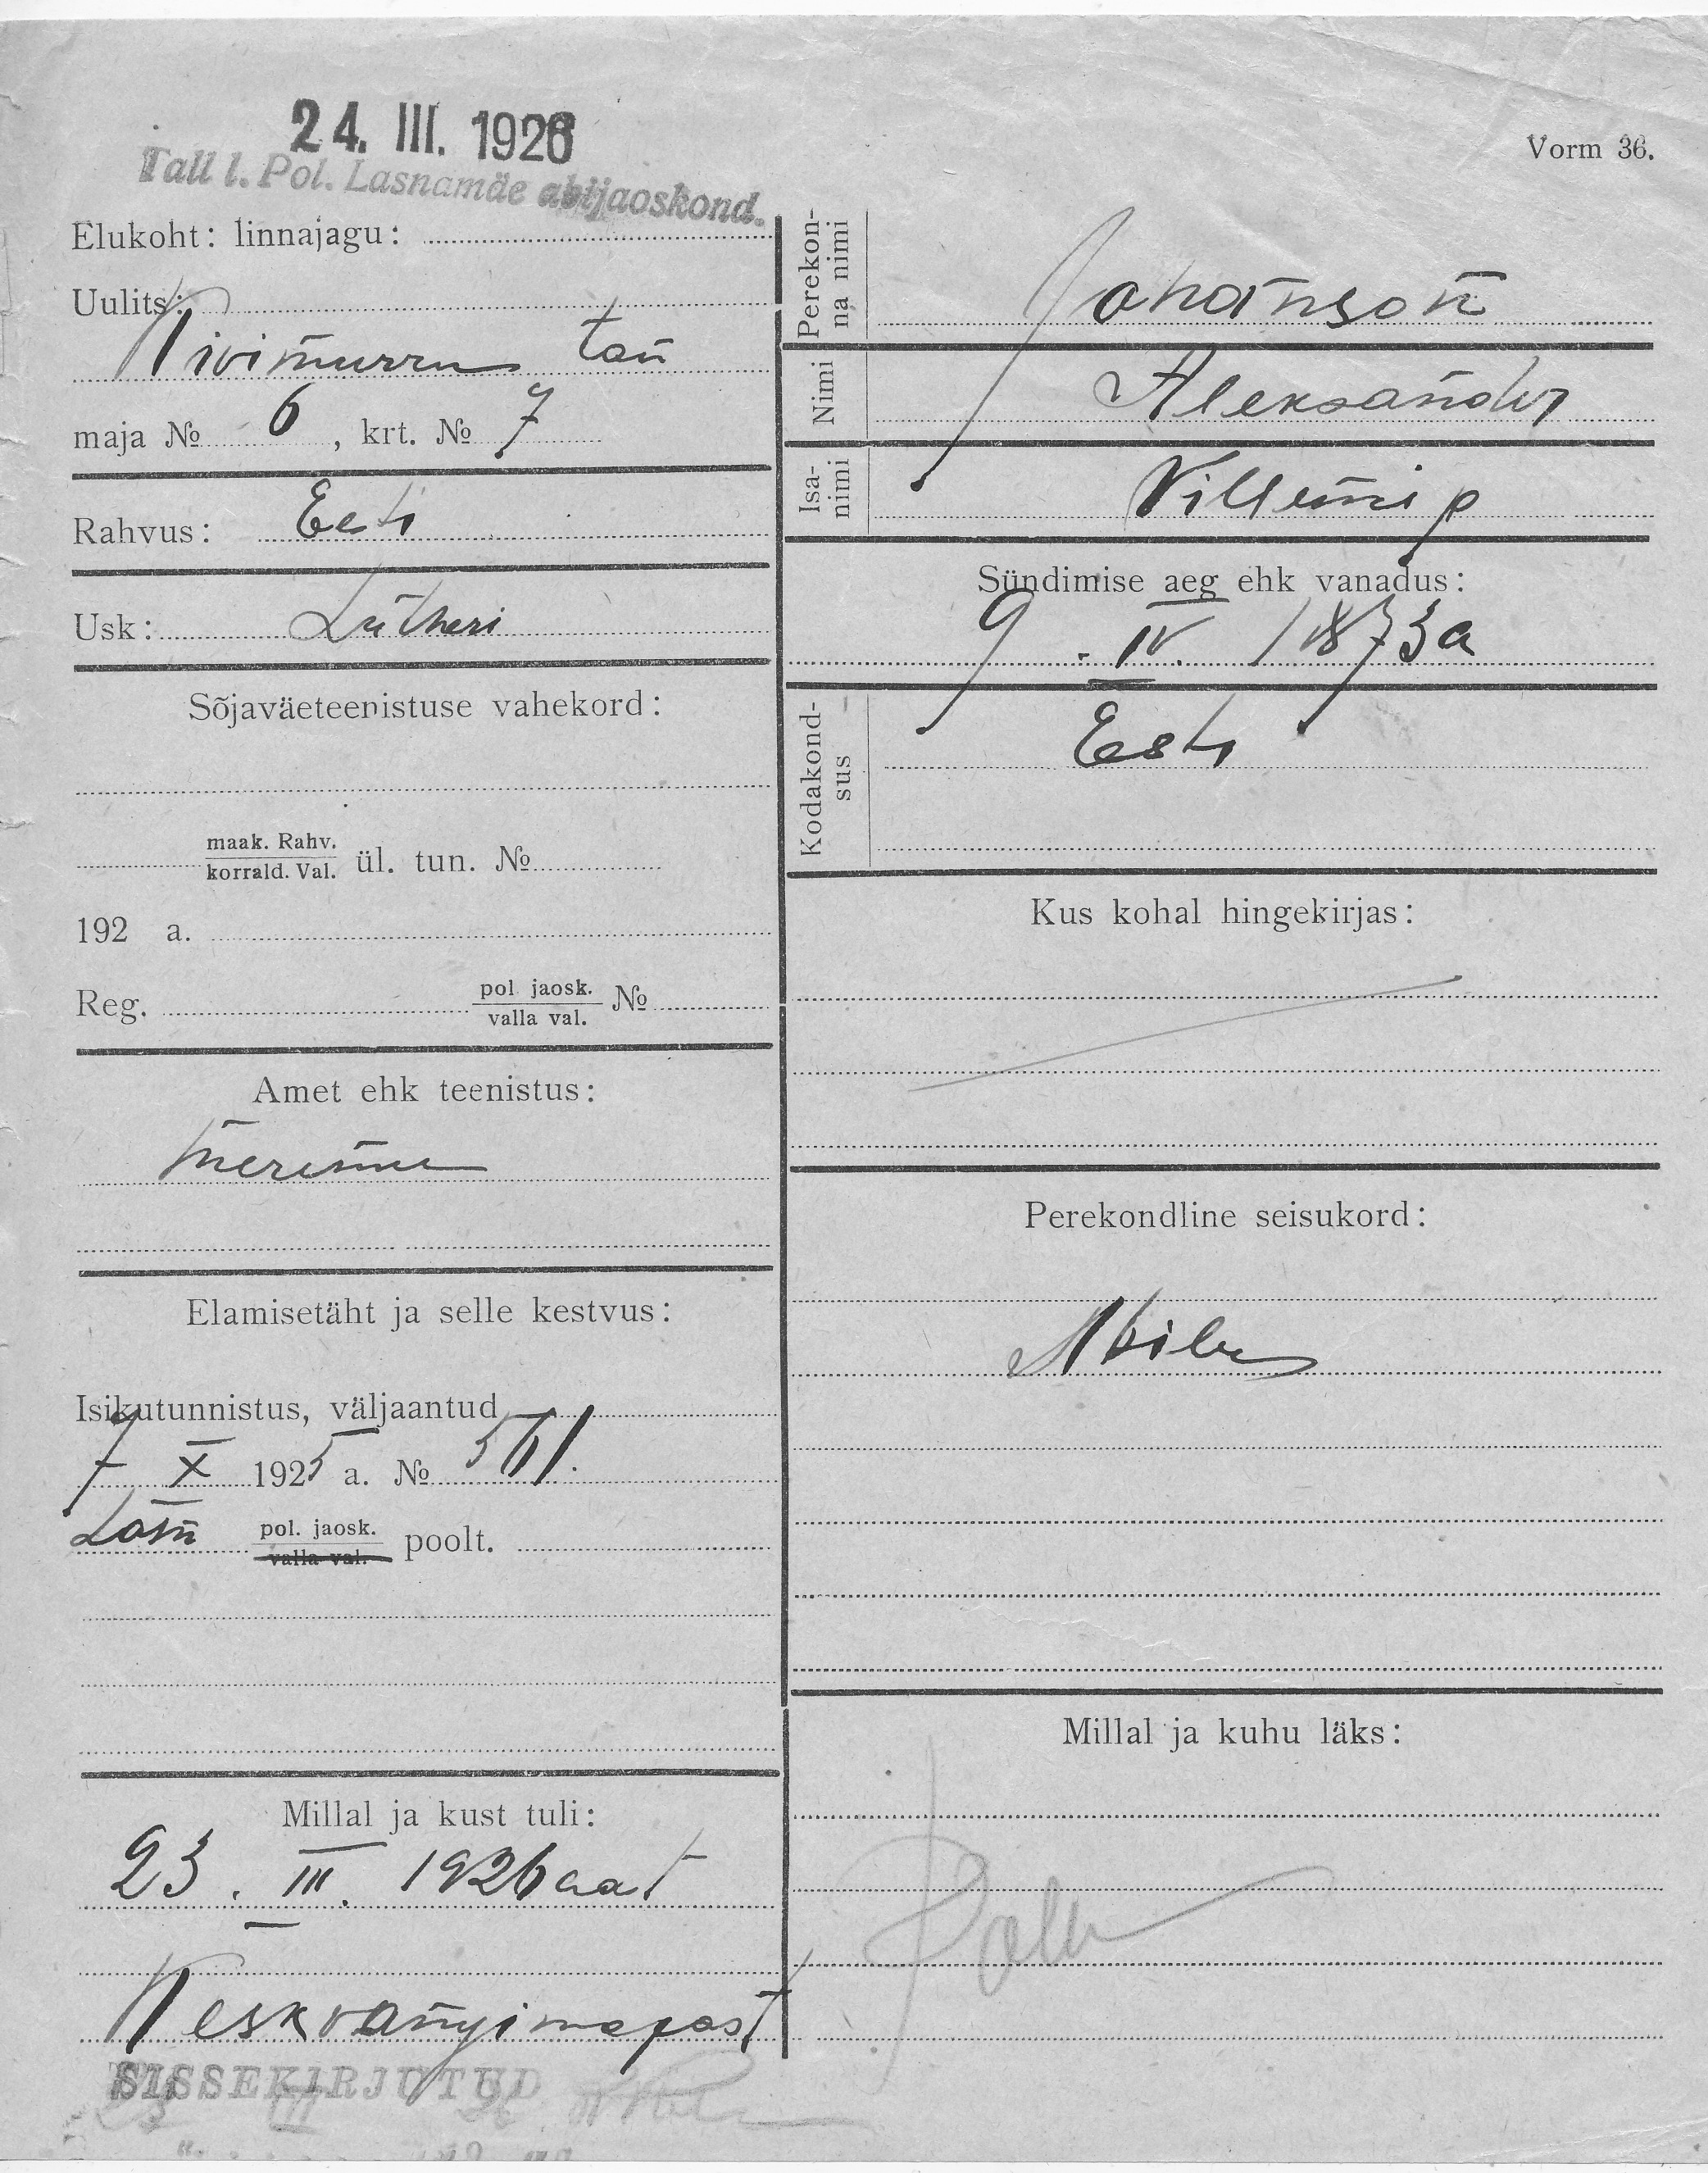 24. III. 1926
Tall l. Pol. Lasnamäe abijaoskond.
Vorm 36.
Elukoht: linnajagu:
Uulits:
Kivimurru tän
maja № 6, krt. № 7
Rahvus: Eesti
Usk: Lutheri
Sõjaväeteenistuse vahekord:
maak. Rahv.
korrald. Val. ül. tun. №
192 a.
Reg. pol. jaosk.
valla val. №
Amet ehk teenistus:
Meremees
Elamisetäht ja selle kestvus:
Isikutunnistus, väljaantud
7 X 1925 a. № 561.
Lasn pol. jaosk.
valla val. poolt.
Millal ja kust tuli:
23. III. 1926 aat
Keskvangimajast
SISSEKIRJUTUD
Perekon-
na nimi
Johanson
Nimi
Aleksander
Isa-
nimi
Villemi p
Sündimise aeg ehk vanadus:
9. IV. 1873 a
Kodakond-
sus
Eesti
Kus kohal hingekirjas:
Perekondline seisukord:
Abielus
Millal ja kuhu läks: